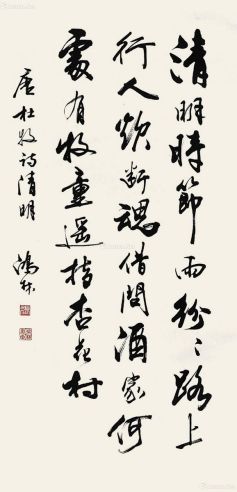 清明時節雨紛〻路上
行人欲断魂借問酒家何
處有牧童遥指杏花村
唐杜牧詩清明